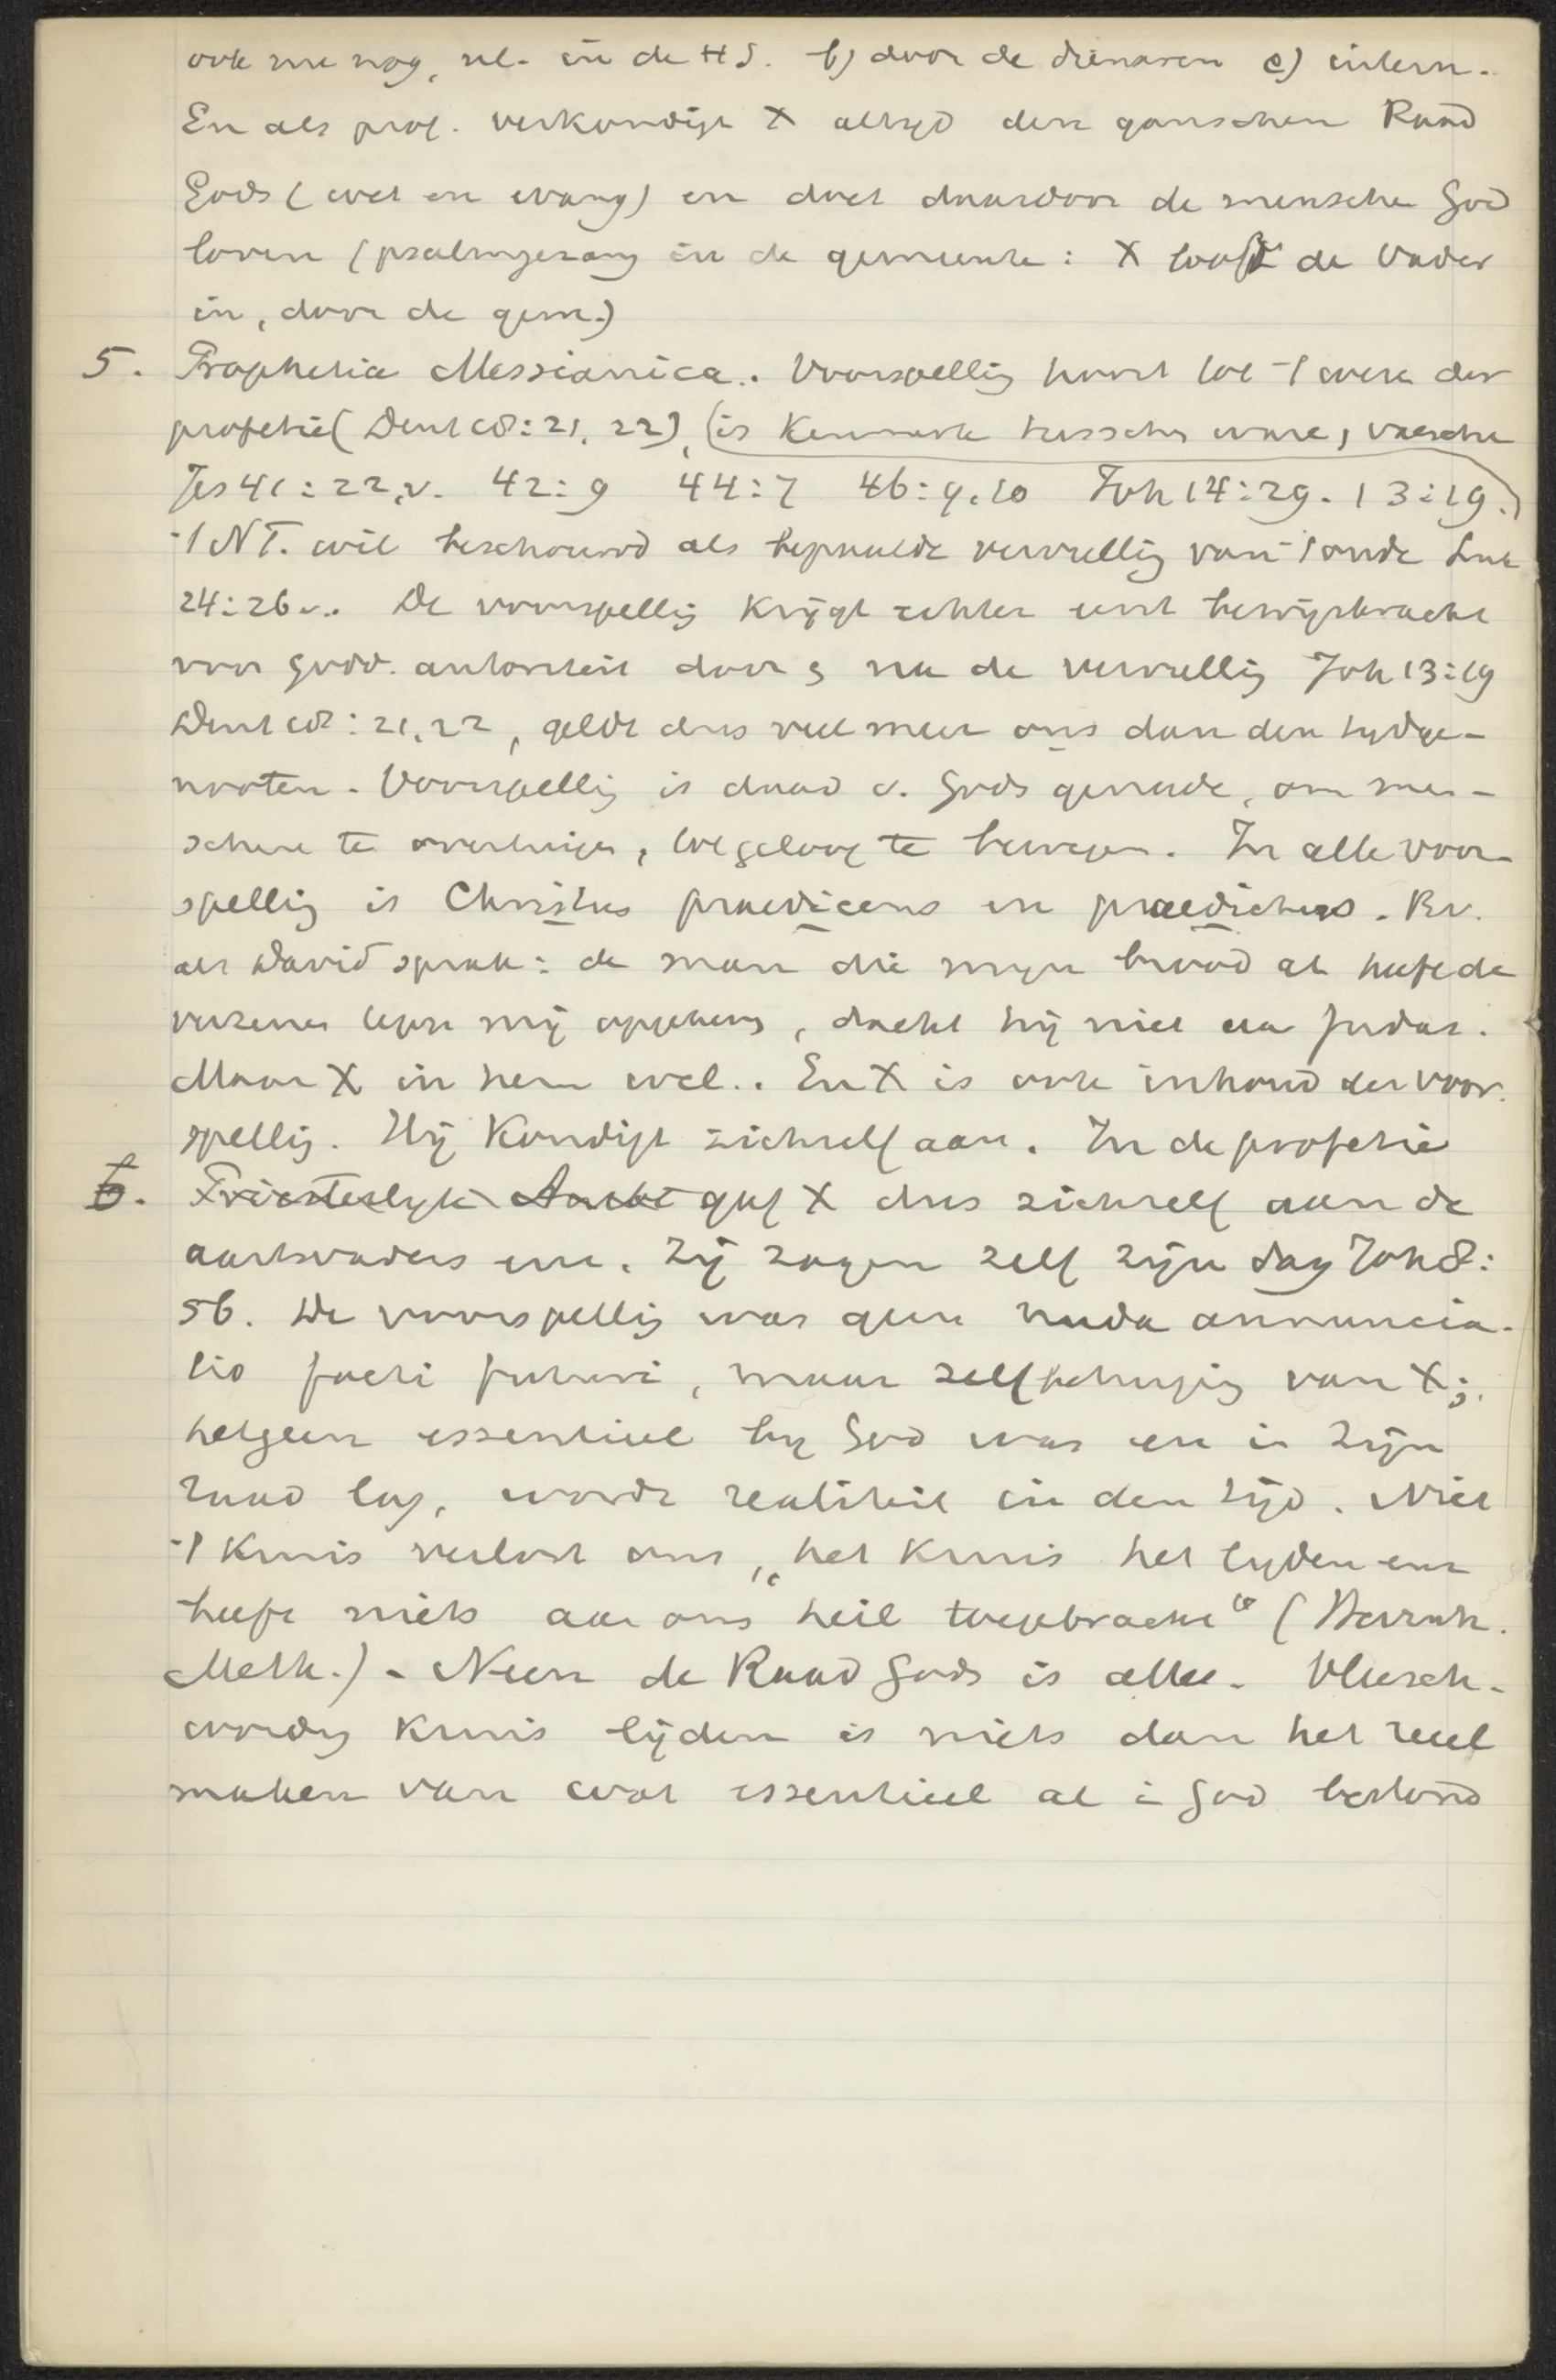 ook nu nog, nl. in de H S. b) door de dienaren c) intern.
En als prof. verkondigt X altijd den ganschen Raad
Gods (wet en evang) en doet daardoor de menschen God
loven (psalmgezang in de gemeente: X looft de Vader
in, door de gem.)
5. Prophetia Messianica. Voorspellig hoort tot -t wezen der
profetie (Deut 18:21, 22), (is Kenmerk tusschen ware, valsche
Jes 41:22,v. 42:9 44:7 46:9,10 Joh 14:29. 13:19.)
-t NT. wil beschouwd als bepaalde vervullig van -t oude Luk
24:26v. De voorspellig krijgt echter eerst bewijskracht
voor godd. autoriteit door, na de vervullig Joh 13:19
Deut 18:21,22, geldt dus veel meer ons dan den tydge-
nooten. Voorspellig is daad v. Gods genade, om men-
schen te overtuigen, tot geloof te bewegen. In alle voor-
spellig is Christus praedicens en praedictus. Bv.
als David sprak: de man die mijn brood at heeft de
verzenen tegen mij opgeheven, dacht hij niet aan Judas.
Maar X in hem wel. En X is ook inhoud der voor.
spellig. Hij Kondigt zichzelf aan. In de profetie
6. Priesterlyk Ambt gaf X dus zichzelf aan de
aartsvaders enz. Zij zagen zelf zijn dag Joh 8:
56. De voorspellig was geen nuda annuncia-
tio facti futuri, maar zelfbetuigig van X;
hetgeen essentieel by God was en in Zijn
raad lag, wordt realiteit in den tijd. Niet
-t Kruis verlost ons, "het Kruis het lyden enz
heeft niets aan ons heil toegebracht" (Herrnh.
Meth.) - Neen de Raad Gods is alles. Vleesch-
wordg Kruis lijden is niets dan het reeel
maken van wat essentieel al i God bestond